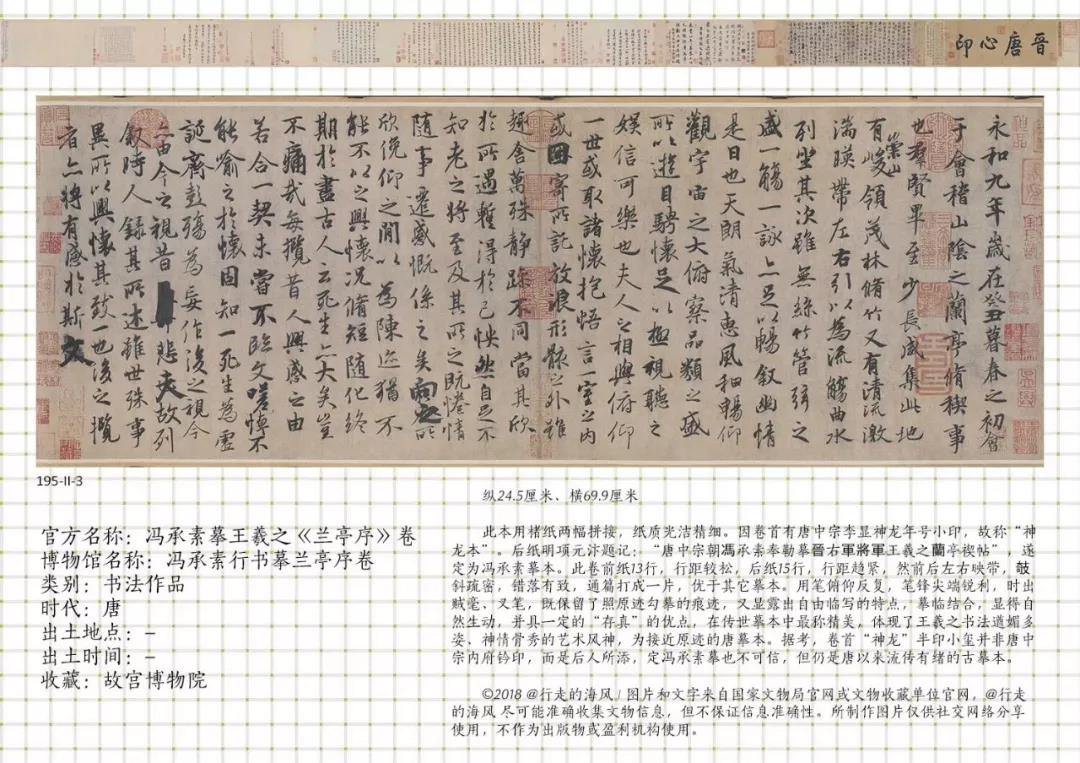 晉唐心印
永和九年歲在癸丑暮春之初會
于會稽山陰之蘭亭脩稧事
也羣賢畢至少長咸集此地
有崇山峻領茂林脩竹又有清流激
湍暎帶左右引以為流觴曲水
列坐其次雖無絲竹管弦之
盛一觴一詠亦足以暢敘幽情
是日也天朗氣清惠風和暢仰
觀宇宙之大俯察品類之盛
所以遊目騁懷足以極視聽之
娛信可樂也夫人之相與俯仰
一世或取諸懷抱悟言一室之內
或因寄所託放浪形骸之外雖
趣舍萬殊靜躁不同當其欣
於所遇暫得於己怏然自足不
知老之將至及其所之既惓情
隨事遷感慨係之矣向之所
欣俛仰之閒以為陳迹猶不
能不以之興懷況脩短隨化終
期於盡古人云死生亦大矣豈
不痛哉每攬昔人興感之由
若合一契未嘗不臨文嗟悼不
能喻之於懷固知一死生為虛
誕齊彭殤為妄作後之視今
亦由今之視昔悲夫故列
敘時人錄其所述雖世殊事
異所以興懷其致一也後之攬
者亦將有感於斯文
195-II-3
官方名称：冯承素摹王羲之《兰亭序》卷
博物馆名称：冯承素行书摹兰亭序卷
类别：书法作品
时代：唐
出土地点：-
出土时间：-
收藏：故宫博物院
纵24.5厘米、横69.9厘米
此本用楮纸两幅拼接，纸质光洁精细。因卷首有唐中宗李显神龙年号小印，故称“神
龙本”。后纸明项元汴题记：“唐中宗朝馮承素奉勒摹晉右軍將軍王羲之蘭亭禊帖”，遂
定为冯承素摹本。此卷前纸13行，行距较松，后纸15行，行距趋紧，然前后左右映带，攲
斜疏密，错落有致，通篇打成一片，优于其它摹本。用笔俯仰反复，笔锋尖端锐利，时出
贼毫、叉笔，既保留了照原迹勾摹的痕迹，又显露出自由临写的特点，摹临结合，显得自
然生动，并具一定的“存真”的优点，在传世摹本中最称精美，体现了王羲之书法遒媚多
姿、神情骨秀的艺术风神，为接近原迹的唐摹本。据考，卷首“神龙”半印小玺并非唐中
宗内府钤印，而是后人所添，定冯承素摹也不可信，但仍是唐以来流传有绪的古摹本。
©2018 @行走的海风 / 图片和文字来自国家文物局官网或文物收藏单位官网，@行走
的海风 尽可能准确收集文物信息，但不保证信息准确性。所制作图片仅供社交网络分享
使用，不作为出版物或盈利机构使用。